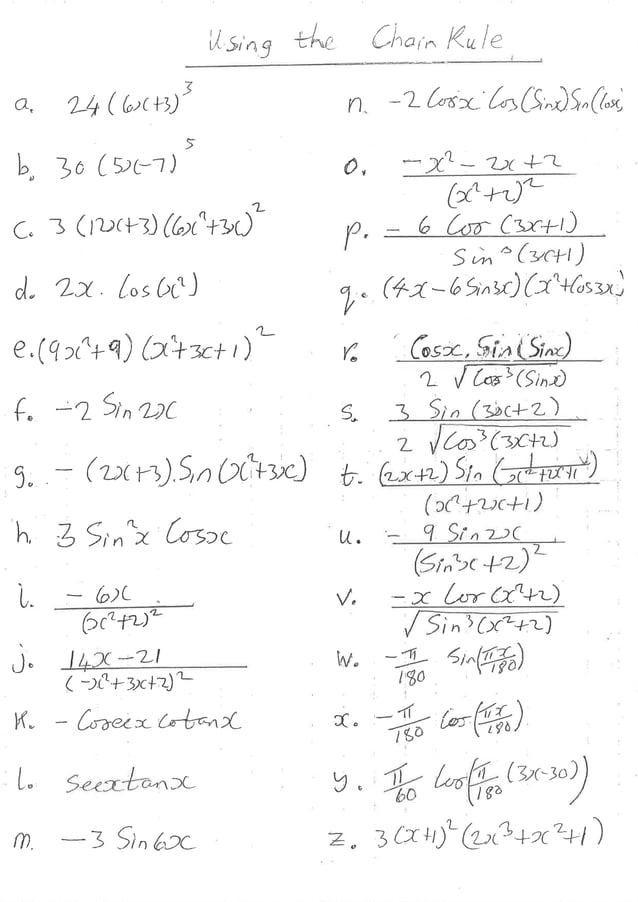 Using the Chain Rule
a. 24(6x+3)³
b. 30(5x-7)⁵
c. 3(12x+3)(6x²+3x)²
d. 2x. Cos(x²)
e. (9x²+9)(x³+3x+1)²
f. -2 Sin2x
g. -(2x+3).Sin(x²+3x)
h. 3 Sin²x Cosx
i. -6x/(x²+2)²
j. 14x-21/(-x²+3x+2)²
k. -Cosecx cotanx
l. secxtanx
m. -3 Sin6x
n. -2 Cosx Cos(Sinx)Sin(Cos
o. -x²-2x+2/(x²+2)²
p. -6 Cos(3x+1)/Sin³(3x+1)
q. (4x-6Sin3x)(x²+Cos3x)
r. Cosx. Sin(Sinx)/2√Cos³(Sinx)
s. 3 Sin(3x+2)/2√Cos³(3x+2)
t. (2x+2)Sin(1/x²+2x+1)/(x²+2x+1)
u. -9 Sin2x/(Sin²x+2)²
v. -x Cos(x²+2)/√Sin³(x²+2)
w. -π/180 Sin(πx/180)
x. -π/180 Cos(πx/180)
y. π/60 Cos(π/180(3x-30))
z. 3(x+1)²(2x³+x²+1)